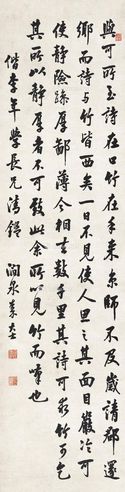 與可所至詩在口竹在手來京師不及歲請郡還
鄉而詩与竹皆西矣一日不見使人思之其面目嚴冷可
使靜險躁厚鄙薄今相去數千里其詩可求竹可乞
其所以靜厚者不可致此余所以見竹而嘆也
年學長兄清鑑